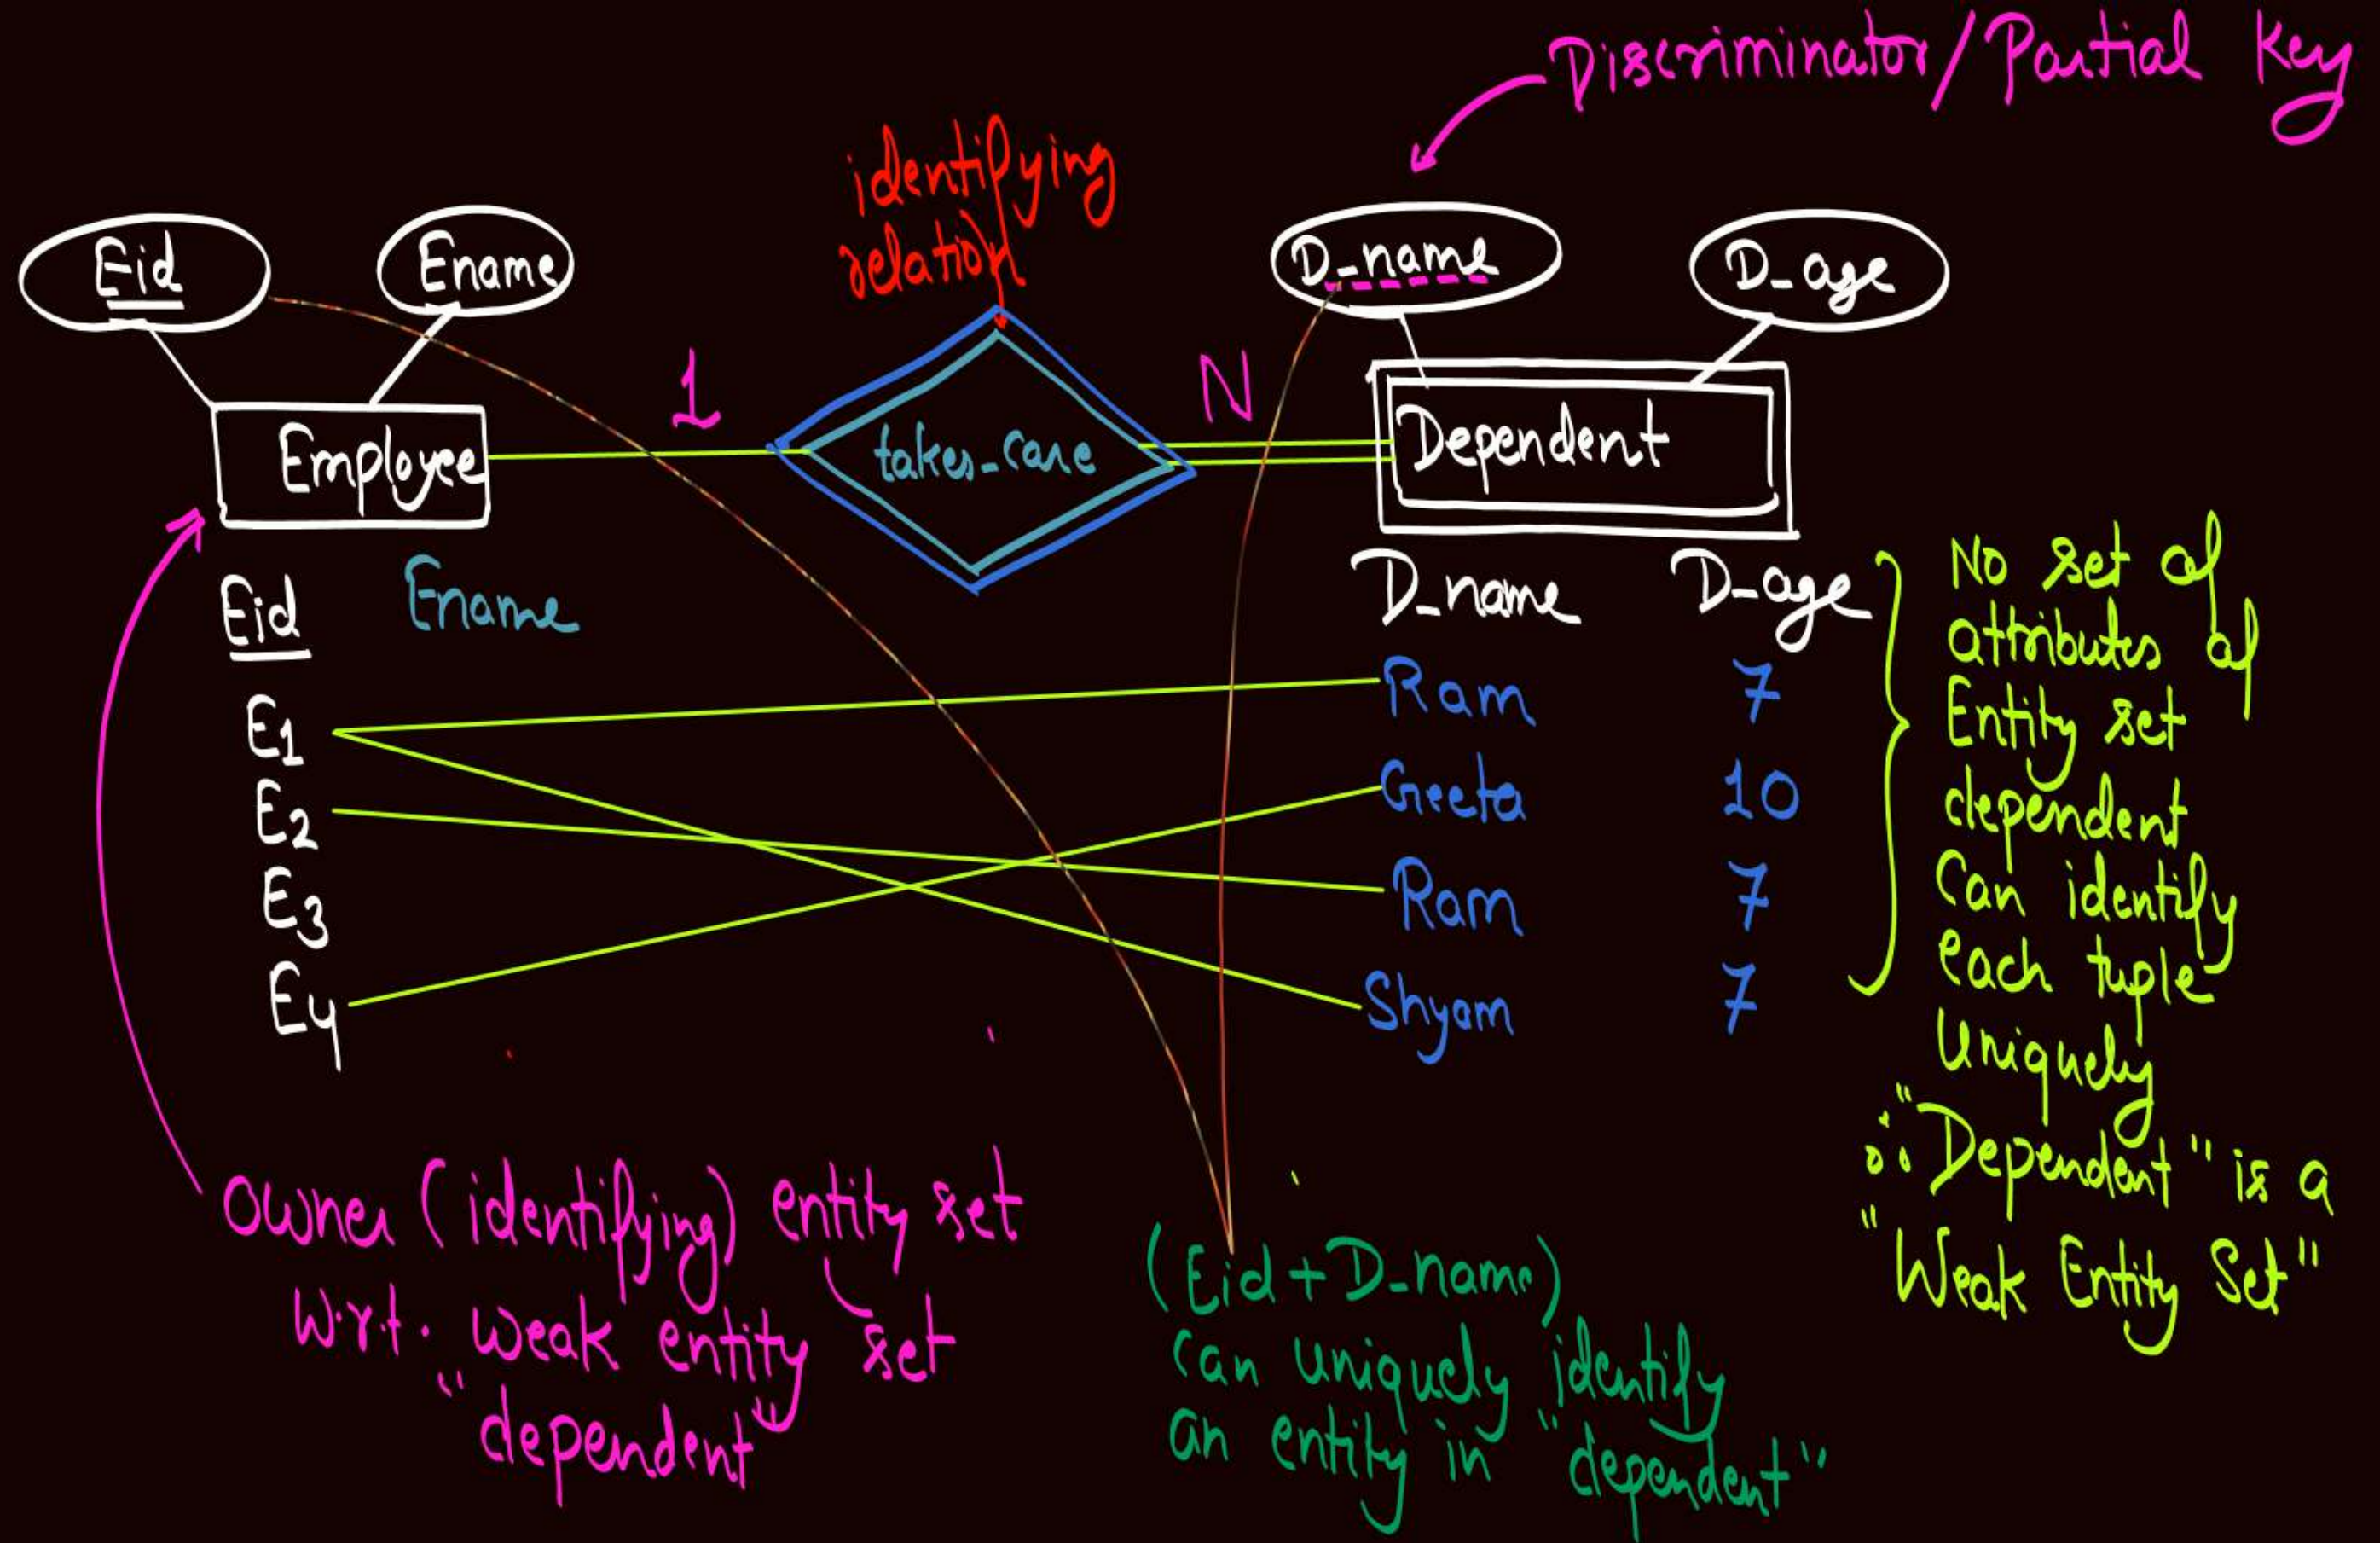 Discriminator/Partial Key
identifying
relation
Eid
Ename
D_name
D_age
1
N
Employee
takes_care
Dependent
Eid
Ename
D_name
D_age
E1
E2
E3
E4
Ram 7
Geeta 10
Ram 7
Shyam 7
No set of
attributes of
Entity set
dependent
Can identify
each tuple
Uniquely
∴ "Dependent" is a
"Weak Entity Set"
Owner (identifying) entity set
w.r.t. weak entity set
"dependent"
(Eid + D_name)
can uniquely identify
an entity in "dependent"